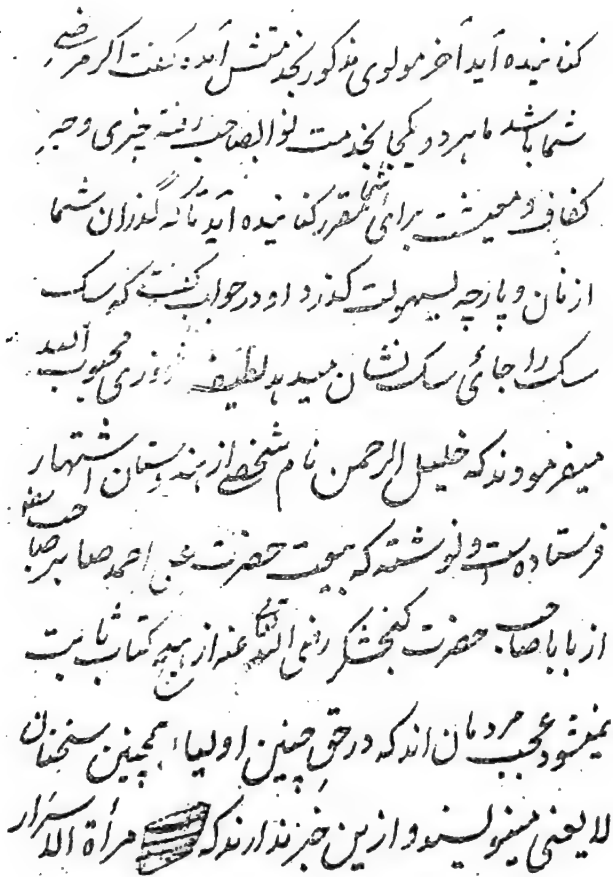 کنانیده آید آخر مولوی مذکور بخدمتش آمد: گفت اگر مرضی
شما باشد ما هر دو یکجا بخدمت نواب صاحب رفته چیزی وجہِ
کفاف و معیشت برای شما مقرر کنانیده آید تا که گذران شما
از نان و پارچه بسهولت گذرد او در جواب گفت که سک
سک را جائ سک نشان میدهد لطیفہ روزی محبوب الله
میفرمودند که خلیل الرحمن نام شخصے از هندوستان اشتهار
فرستاده است و نوشته که بیعت حضرت علی احمد صابر صاحب
از بابا صاحب حضرت گنجشکر رضی الله تعالی عنه از هیچ کتاب ثابت
نمیشود عجب مردمان اند که در حقِ چنین اولیاء همچنین سخنان
لا یعنی مینویسند و ازین خبر ندارند که مرأة الاسرار